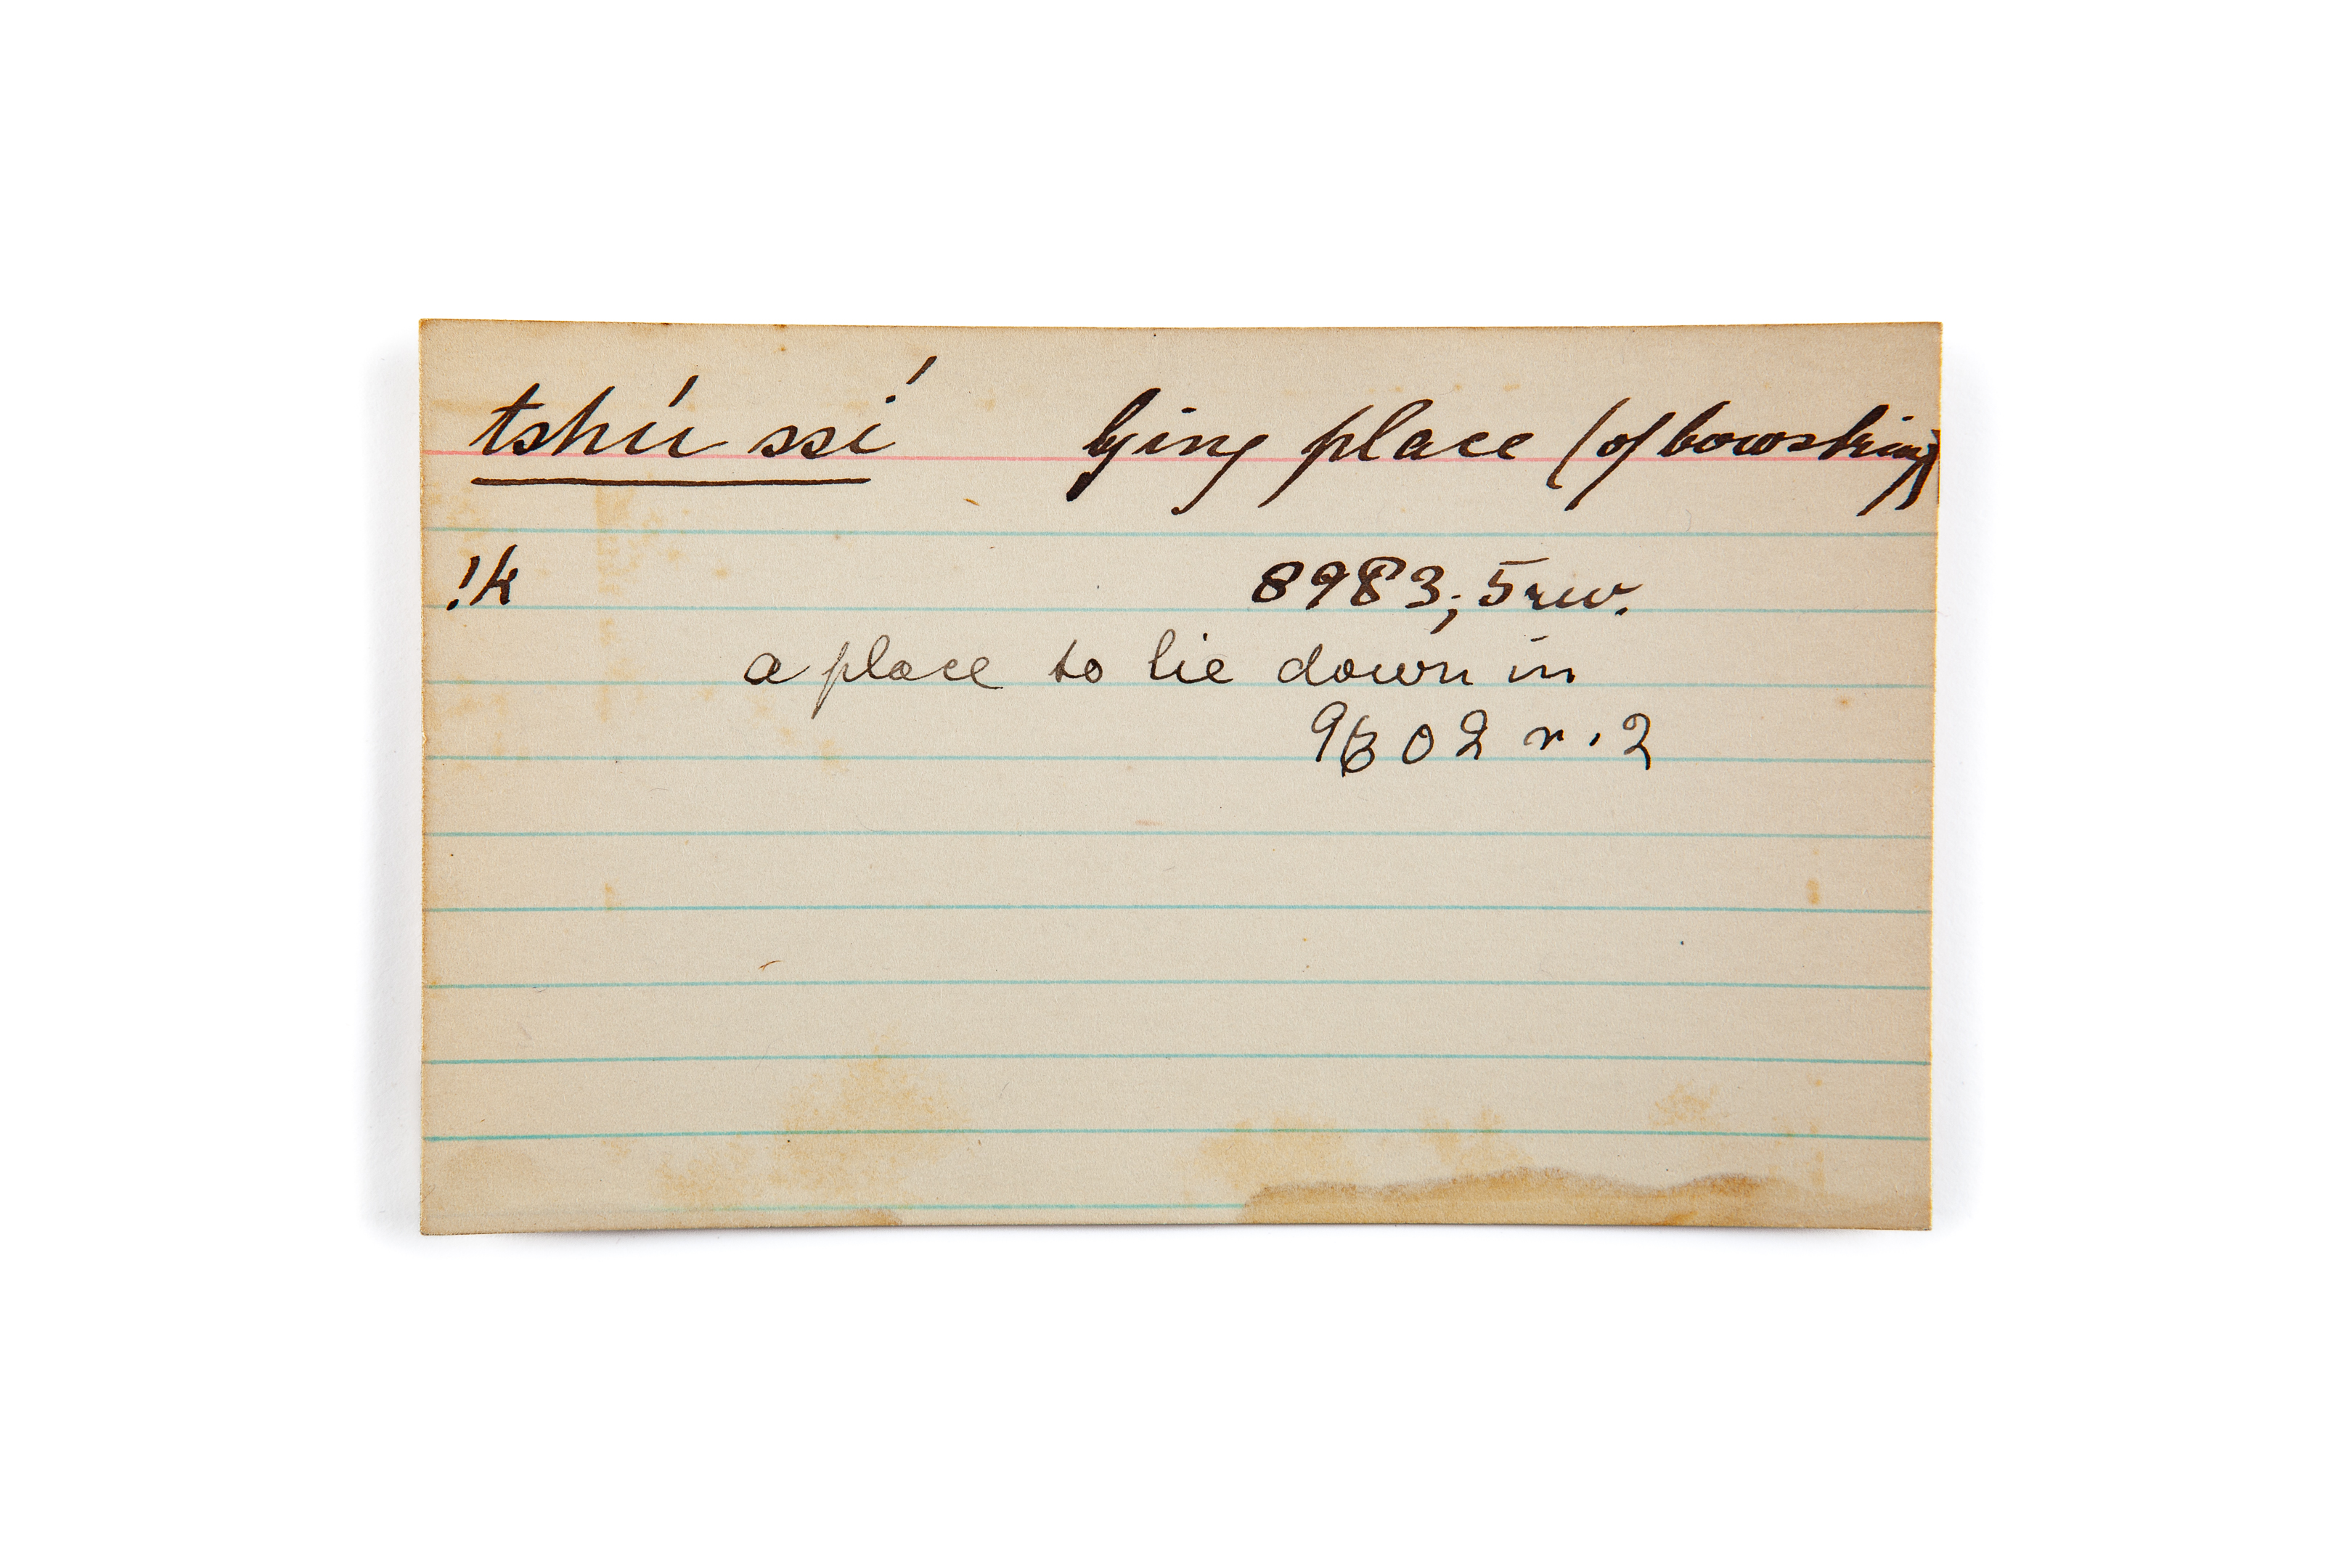 tshú ssí lying place (of bowstring)
!k 8983; 5 rev.
a place to lie down in
r. 2